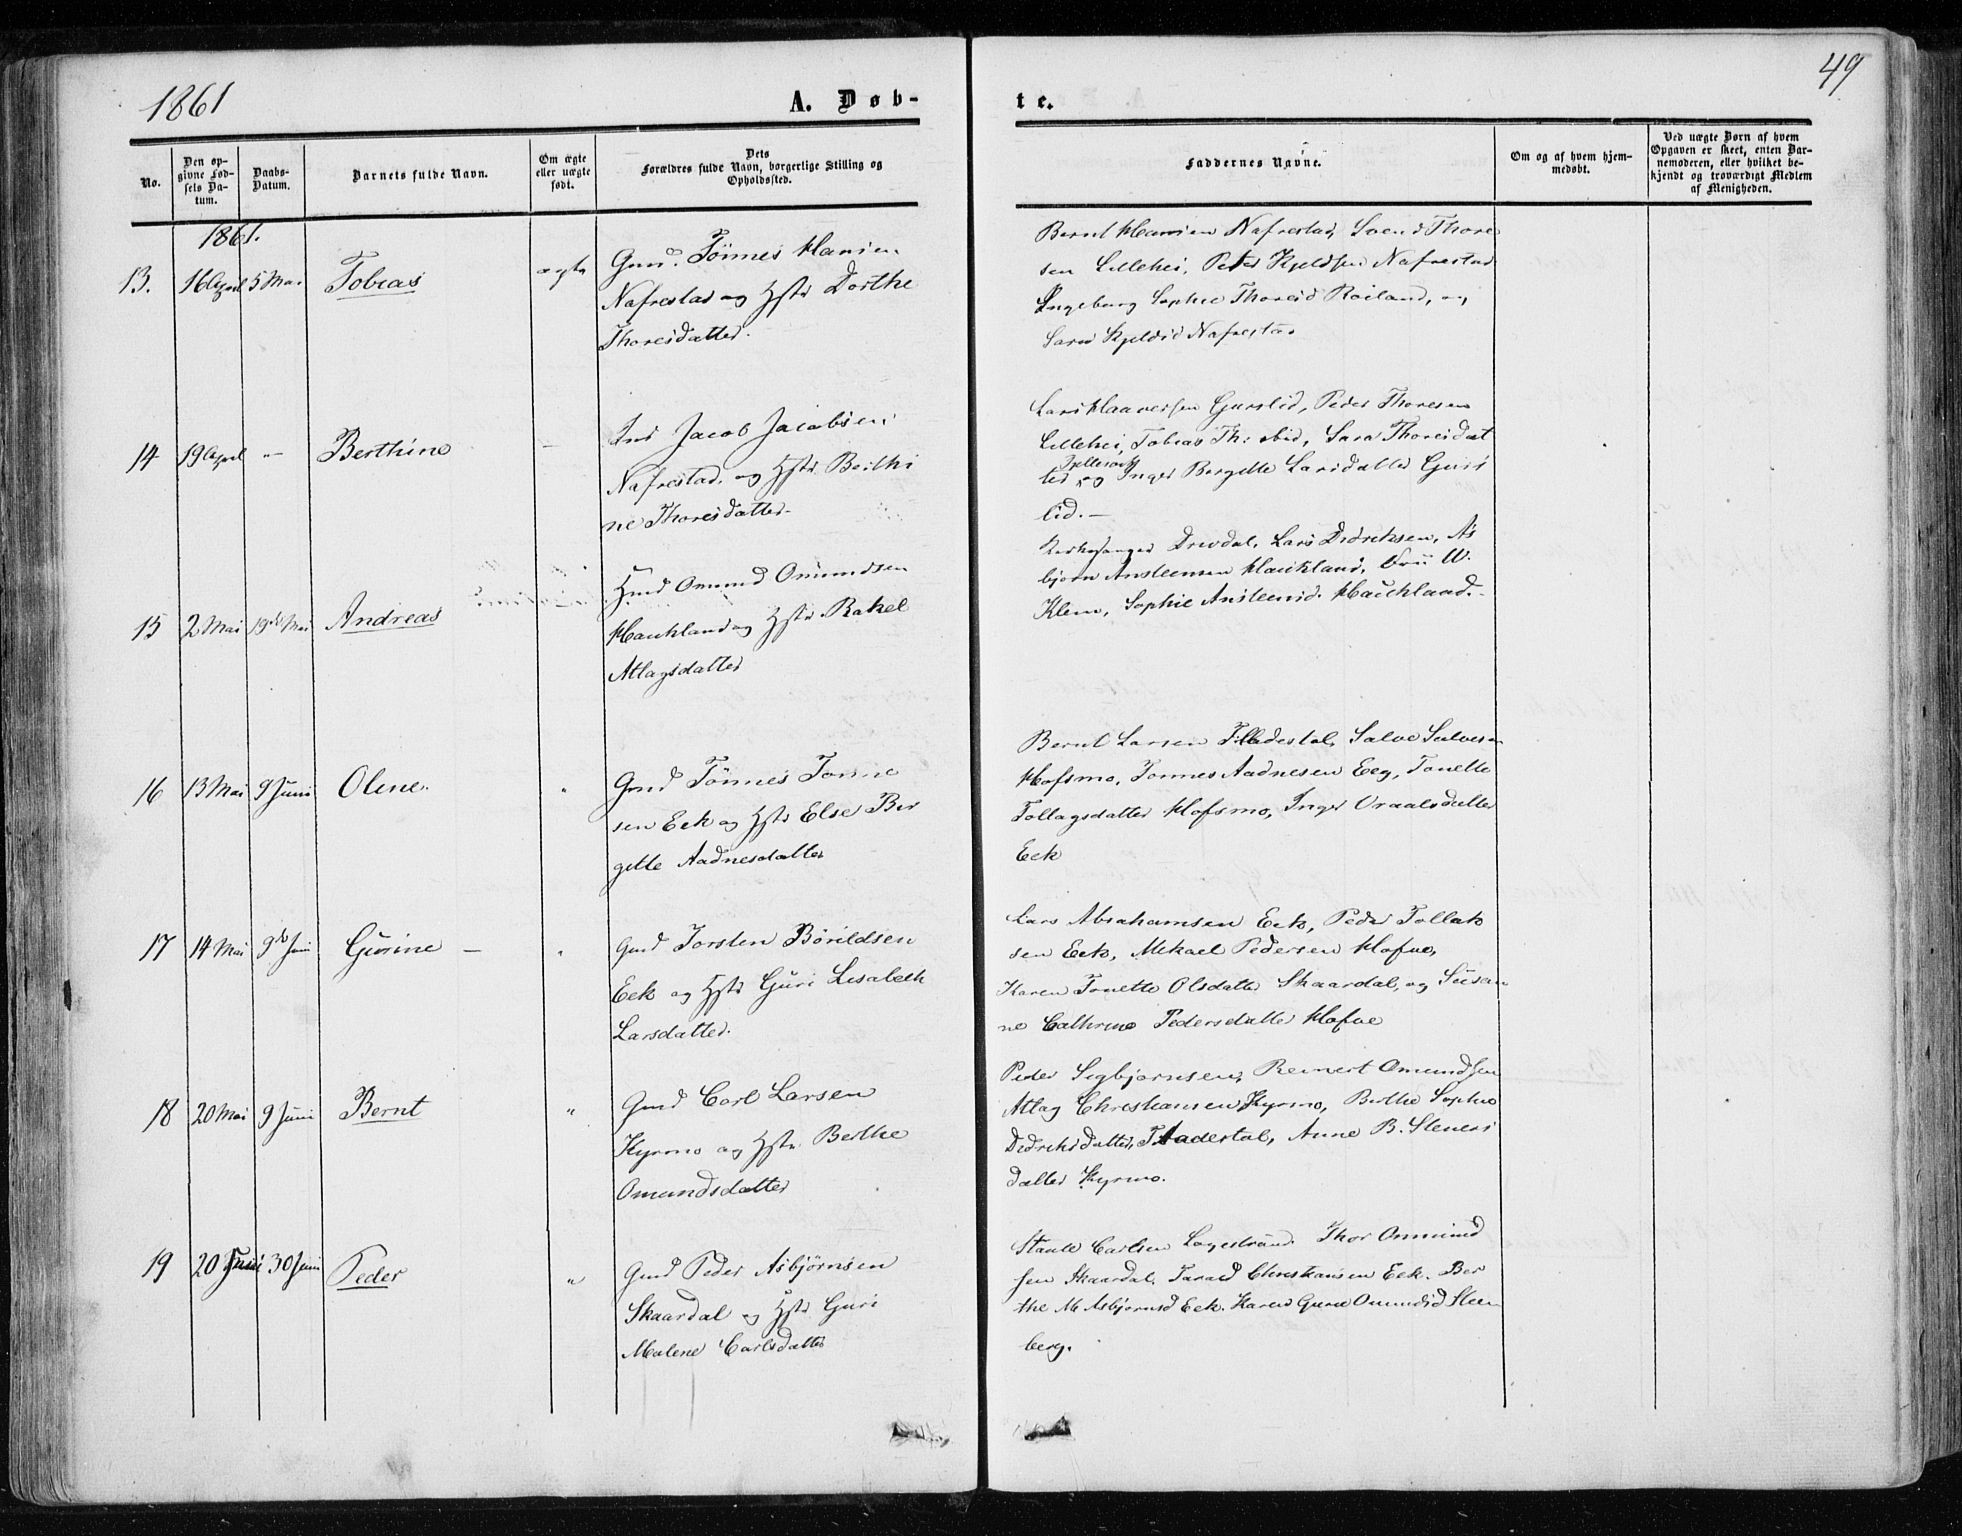 1861
A. Døb-
te.
49
No.
Den op-
givne Fød-
sels Da-
tum.
Daabs-
Datum.
Barnets fulde Navn.
Om ægte
eller uægte
født.
Dets
Forældres fulde Navn, borgerlige Stilling og
Opholdssted.
Faddernes Navne.
Om og af hvem hjem-
medøbt.
Ved uægte Børn af hvem
Opgaven er skeet, enten Bar-
nemoderen, eller hvilket be-
kjendt og troværdigt Medlem
af Menigheden.
1861.
13. 16 April 5 Mai Tobias ægte
Gmd. Tönnes Hansen
Nafrestad og Hstr Dorthe
Thoresdatter.
Bernt Hansen Nafrestad, Svend Thore
sen Lillehei, Peder Kjeldsen Nafrestad
Ingeborg Sophie Thoresd Roiland, og
Sara Kjeldsd Nafrestad
14 19 April -"- Berthine —
Jacob Jacobsen
Nafrestad og Hstr Berthi
ne Thoresdatter.
Lars Haaversen Gurslid, Peder Thoresen
Lillehei, Tobias Th: ibid, Sara Thoresdat
ter og Inger Bergitte Larsdatter Gurs
lid.—
15 2 Mai 19de Mai Andreas
Gmd Omund Omundsen
Haukland og Hstr Rakel
Atlagsdatter
Kirkesanger Drivdal, Lars Didriksen, As
bjørn Ansteensen Haukland, Fru W.
Klem, Sophie Ansteensd. Hauchland.-
16 13 Mai 9 Juni Oline. "
Gmd Tönnes Tonne
sen Eek og Hstr Else Ber
gitte Aadnesdatter
Bernt Larsen Salve Salvesen
Hofsmo, Tonnes Aadnesen Eeg, Tonette
Tollagsdatter Hofsmo, Inger Oraalsdatter
Eek
17 14 Mai 9de Juni Gurine — "
Gmd Torsten Börildsen
Eek og Hstr Guri Lisabeth
Larsdatter.
Lars Abrahamsen Eek, Peder Tollak
sen Eek, Mikael Pedersen Hofve,
Karen Tonette Olsdatter Skaardal, og Susan
ne Cathrine Pedersdatter Hofve
18 20 Mai 9 Juni Bernt "
Gmd Carl Larsen
Kyrmo og Hstr Berthe
Omundsdatter
Peder Sigbjørnsen, Reinert Omundsen
Atlag Christiansen Kyrmo, Berthe Sophie
Didriksdatter, Anne B. Steners
datter Kyrmo.
19 20 Juni 30 Juni Peder "
Gmd Peder Asbjørnsen
Skaardal og Hstr Guri
Malene Carlsdatter
Staale Carlsen Logestrand. Thor Ommund
sen Skaardal. Tarald Christiansen Eek. Ber
the M Asbjørnsd Eek. Karen Gurie Omundsd Steen
berg.